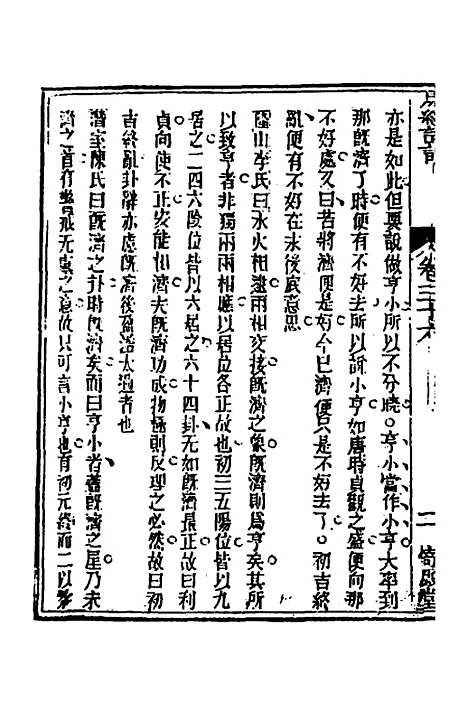 亦是如此但要說做亨小所以不分曉亨小當作小亨大率到
那既濟了時便有不好去所以說小亨如唐時貞觀之盛便向那
不好處又曰若將濟便是好今已濟便只是不好了初吉終
亂便有不好在末後底意思
山李氏曰水火相逮兩相交接既濟之象既濟則為亨矣其所
以致亨者非獨兩兩相應以居位各正故也初三五陽位皆以九
居之二四六陰位皆以六居之六十四卦无如既濟最正故曰利
貞向使不正安能相濟夫既濟功成物極則反理之必然故曰初
吉終亂卦辭亦慮既濟後盈溢太過者也
潛室陳氏曰既濟之卦時既濟矣而曰亨小者蓋既濟之星乃未
濟之首有無虞之意故只可言小亨也有初无終而二以
卷三十六
二